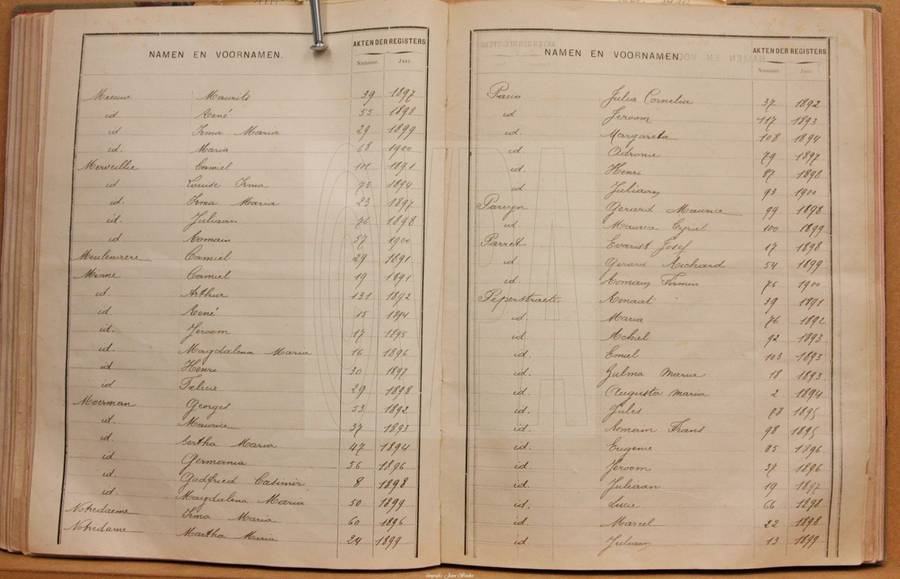 NAMEN EN VOORNAMEN. AKTEN DER REGISTERS
Nummer. Jaar.
Meeuw Maurits 39 1897
id René 53 1898
id Irma Maria 29 1899
id Maria 68 1900
Merveillie Camiel 101 1891
id Louise Irma 92 1894
id. Irma Maria 23 1897
id. Juliaan 76 1898
id Romain 57 1900
Meulemeere Camiel 29 1891
Minne Camiel 19 1891
id. Arthur 131 1892
id René 15 1894
id. Jeroom 17 1895
id. Magdalena Maria 16 1896
id Henri 30 1897
id Felicie 29 1898
Moerman Georges 53 1892
id. Maurice 37 1893
id. Bertha Maria 47 1894
id Germania 56 1896
id. Godfried Casimir 8 1898
id. Magdalena Maria 50 1899
Notredaeme Irma Maria 60 1896
Notredame Martha Maria 24 1899
NAMEN EN VOORNAMEN. AKTEN DER REGISTERS
Nummer. Jaar.
Julia Cornelia 37 1892
id Jeroom 117 1893
id. Margareta 108 1894
id. 79 1897
id Henri 87 1898
id Juliaan 93 1900
Parmyn Gerard Maurice 99 1898
id Maurice Cyriel 100 1899
Parret Evarist Josef 17 1898
id. Gerard Richard 54 1899
id. Romain Firmin 76 1900
Peperstraete Remi 39 1891
id. Maria 76 1892
id. Achiel 92 1893
id. Emiel 103 1893
id. Zulma Marie 18 1893
id. Augusta Maria 2 1894
id. Jules 87 1895
id. Romain Frans 98 1895
id. Eugenie 85 1896
id. Jeroom 37 1896
id. Juliaan 19 1897
id. Lucie 66 1898
id. Marcel 22 1898
id Juliaan 13 1899